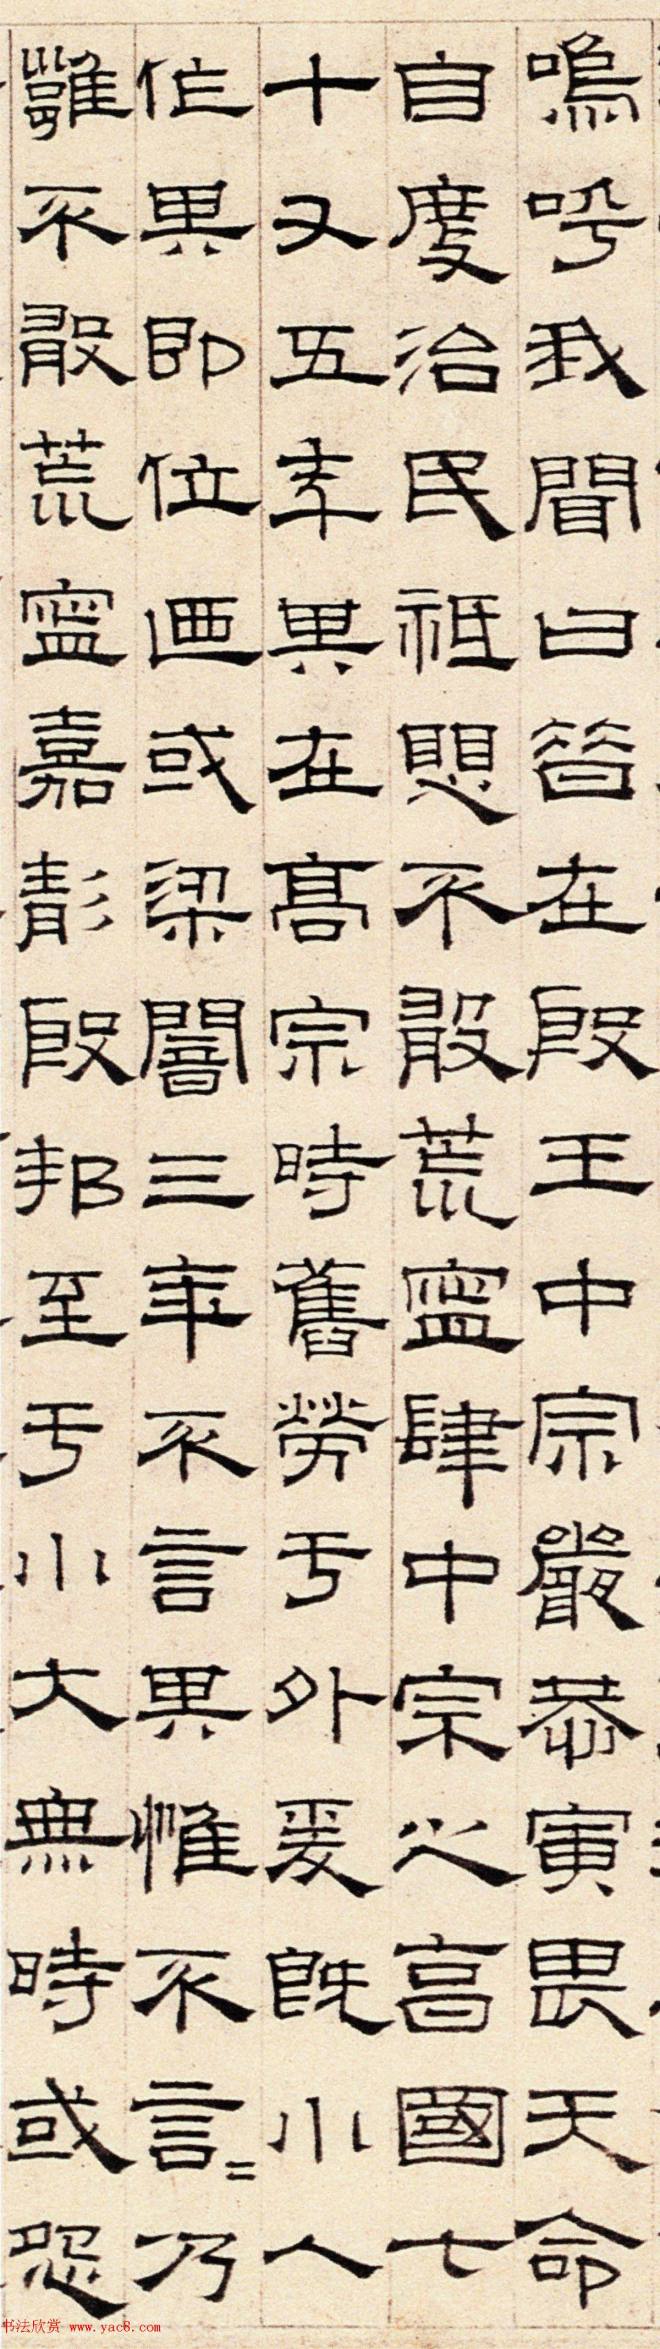 嗚呼我聞曰昔在殷王中宗嚴恭寅畏天命
自度治民祗愳不敢荒寧肆中宗之亯國七
十又五年其在高宗時舊勞于外爰既小人
作其即位迺或梁闇三年不言其惟不言=乃
雝不敢荒寧嘉靜殷邦至于小大無時或怨
书法欣赏 www.yac8.com